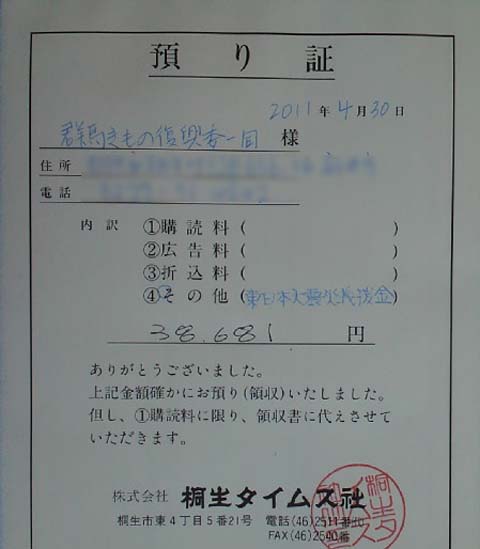 預り証
2011年4月30日
群馬きもの復興委一同 様
住所
電話
内訳 ①購読料( )
②広告料( )
③折込料( )
④その他(東日本大震災義援金)
38,681 円
ありがとうございました。
上記金額確かにお預り(領収)いたしました。
但し、①購読料に限り、領収書に代えさせて
いただきます。
株式会社 桐生タイムス社
桐生市東4丁目5番21号 電話(46)2511番代
FAX(46)2540番